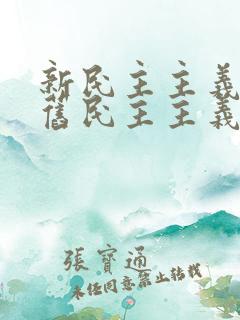 新民主主義
舊民主主義
張寶通
未任同意禁止转载